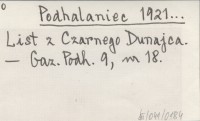 0
Podhalaniec 1921...
List z Czarnego Dunajca.
— Gaz. Podh. 9, nr 18.